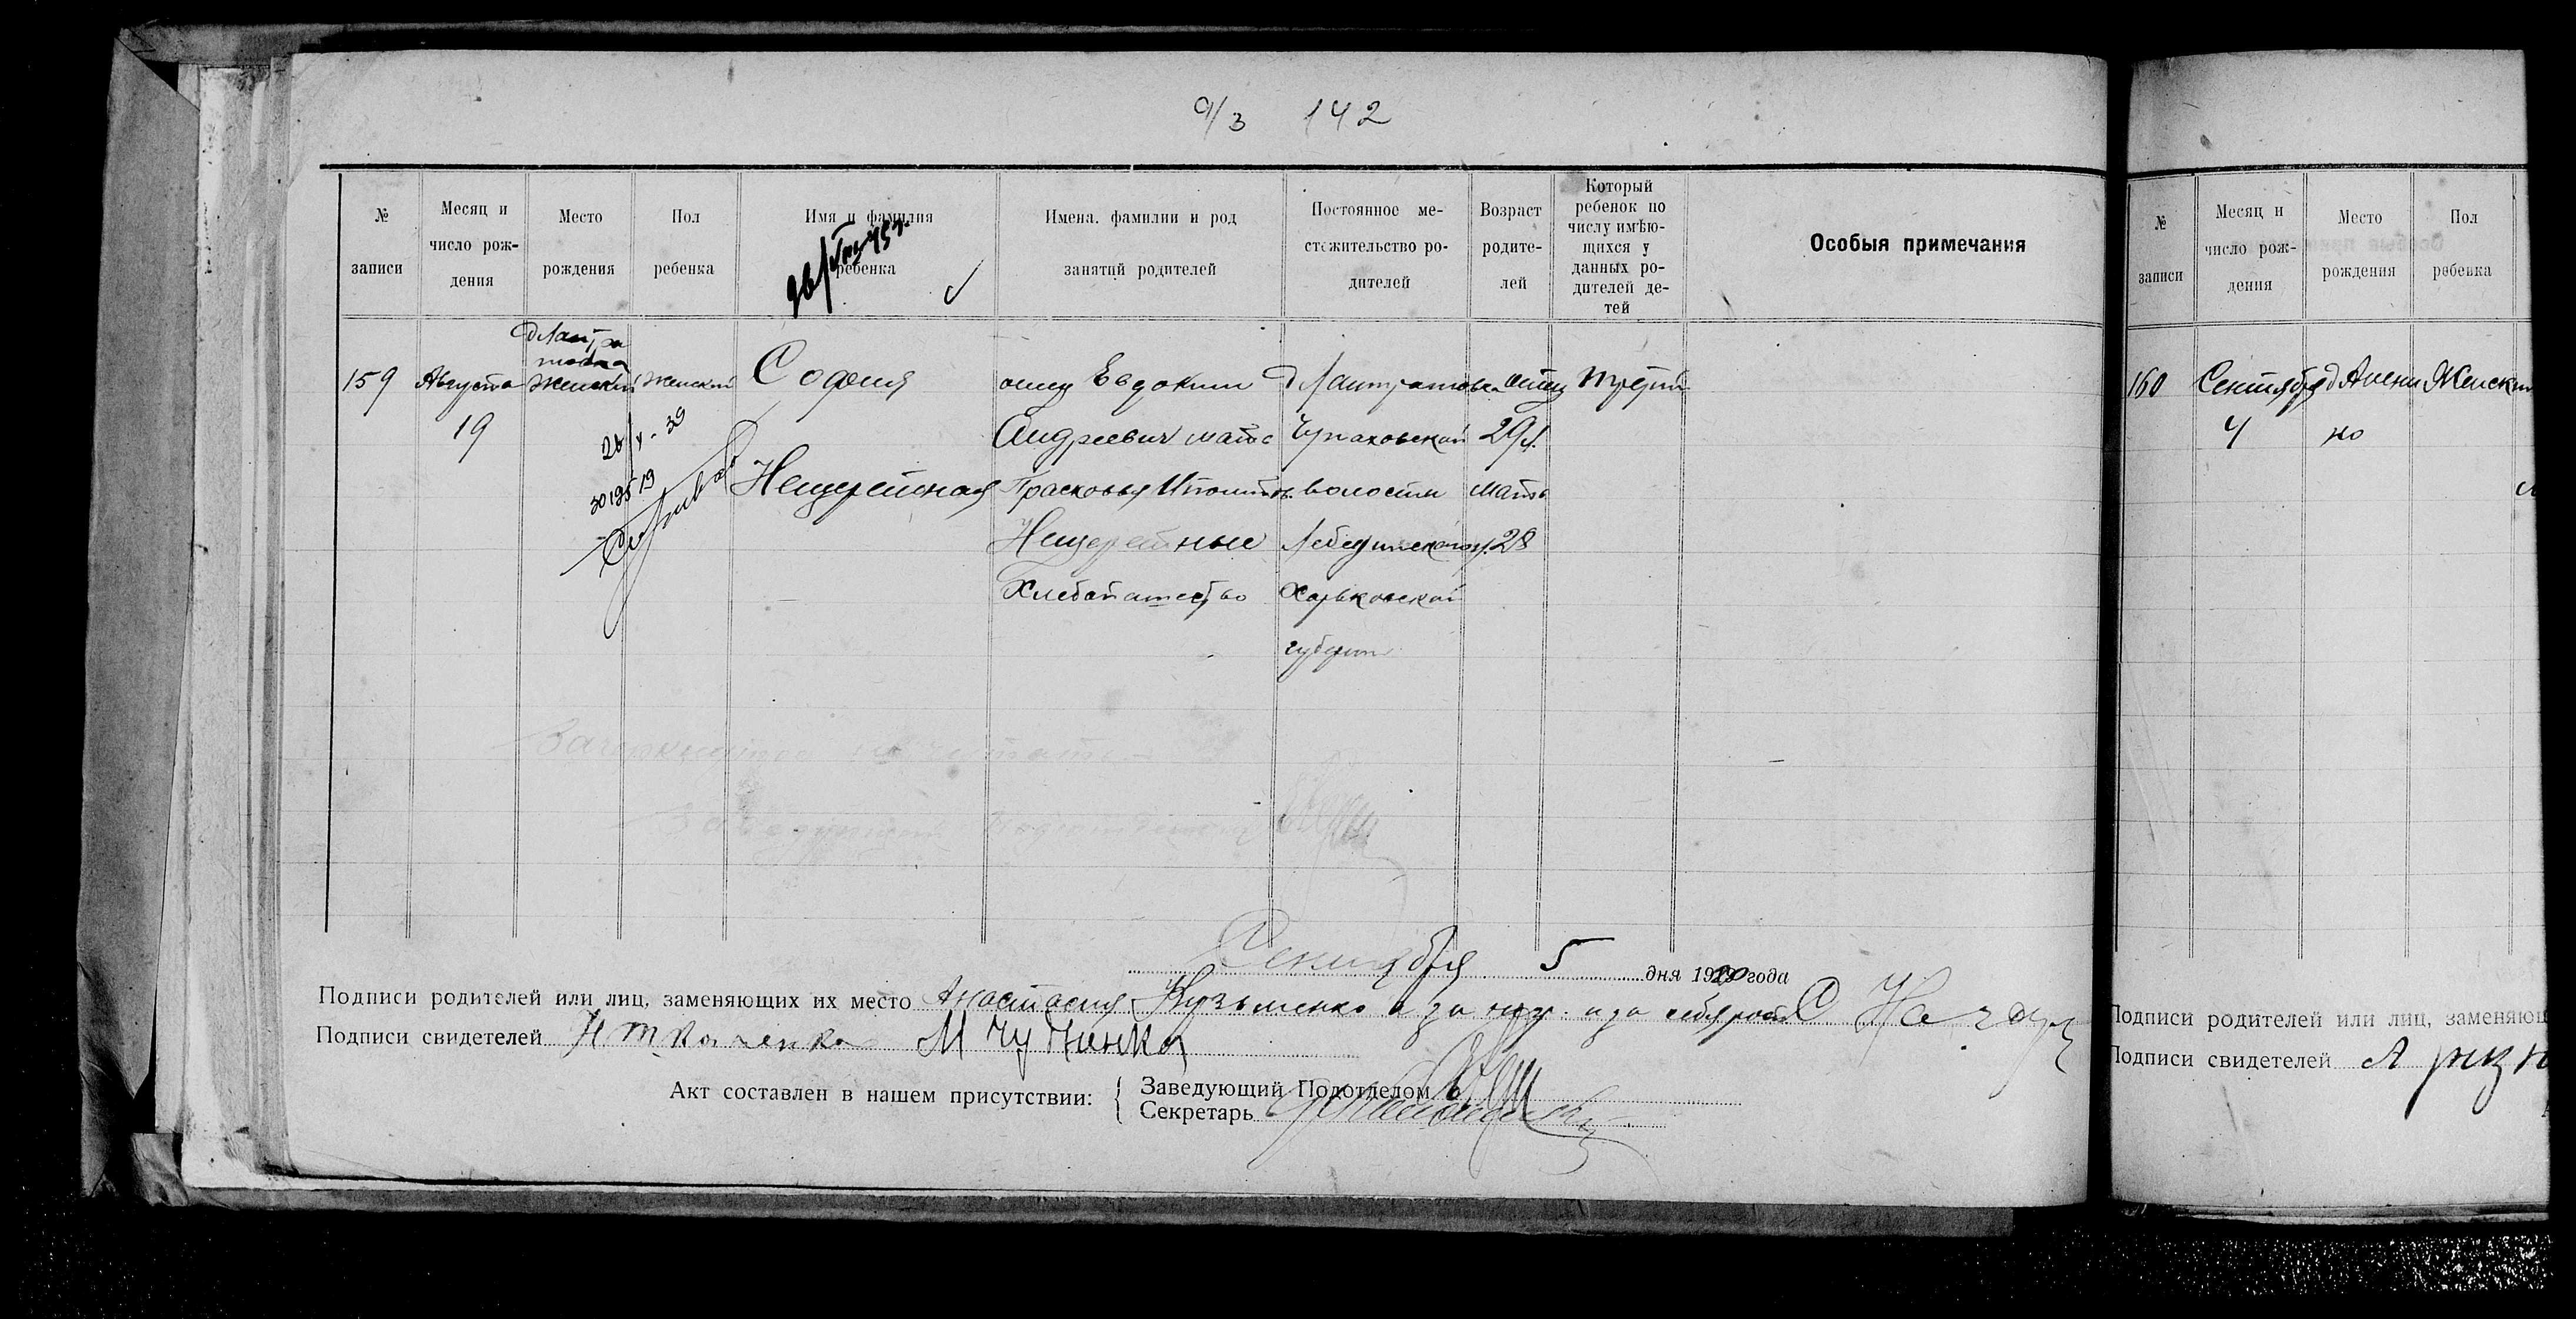 9/3 142
№ записи
Месяц и число рождения
Место рождения
Пол ребенка
Имя и фамилия ребенка
Имена, фамилии и род занятий родителей
Постоянное местожительство родителей
Возраст родителей
Который ребенок по числу имѣющихся у данных родителей детей
Особыя примечания
159 Августа женский женский София отец Евдоким д Лантратовка отец третий
19 Андреевич мать Чупаховской 29 л.
Нещеретная Прасковья Иполитов. волости мать
Нещеретные Лебединского у. 28
Хлебопашество Харьковской
губернии
28/V-39
Зачеркнутое не читать
Заведующий Подотделом
Сентября 5 дня 1920 года
Подписи родителей или лиц, заменяющих их место Анастасия Кузьменко а за
Подписи свидетелей Н Ткаченко М Чудненко
Акт составлен в нашем присутствии:
Заведующий Подотделом
Секретарь
№ записи
Месяц и число рождения
Место рождения
Пол ребенка
160 Сентября Женский
4 но
Подписи родителей или лиц, заменяющ
Подписи свидетелей